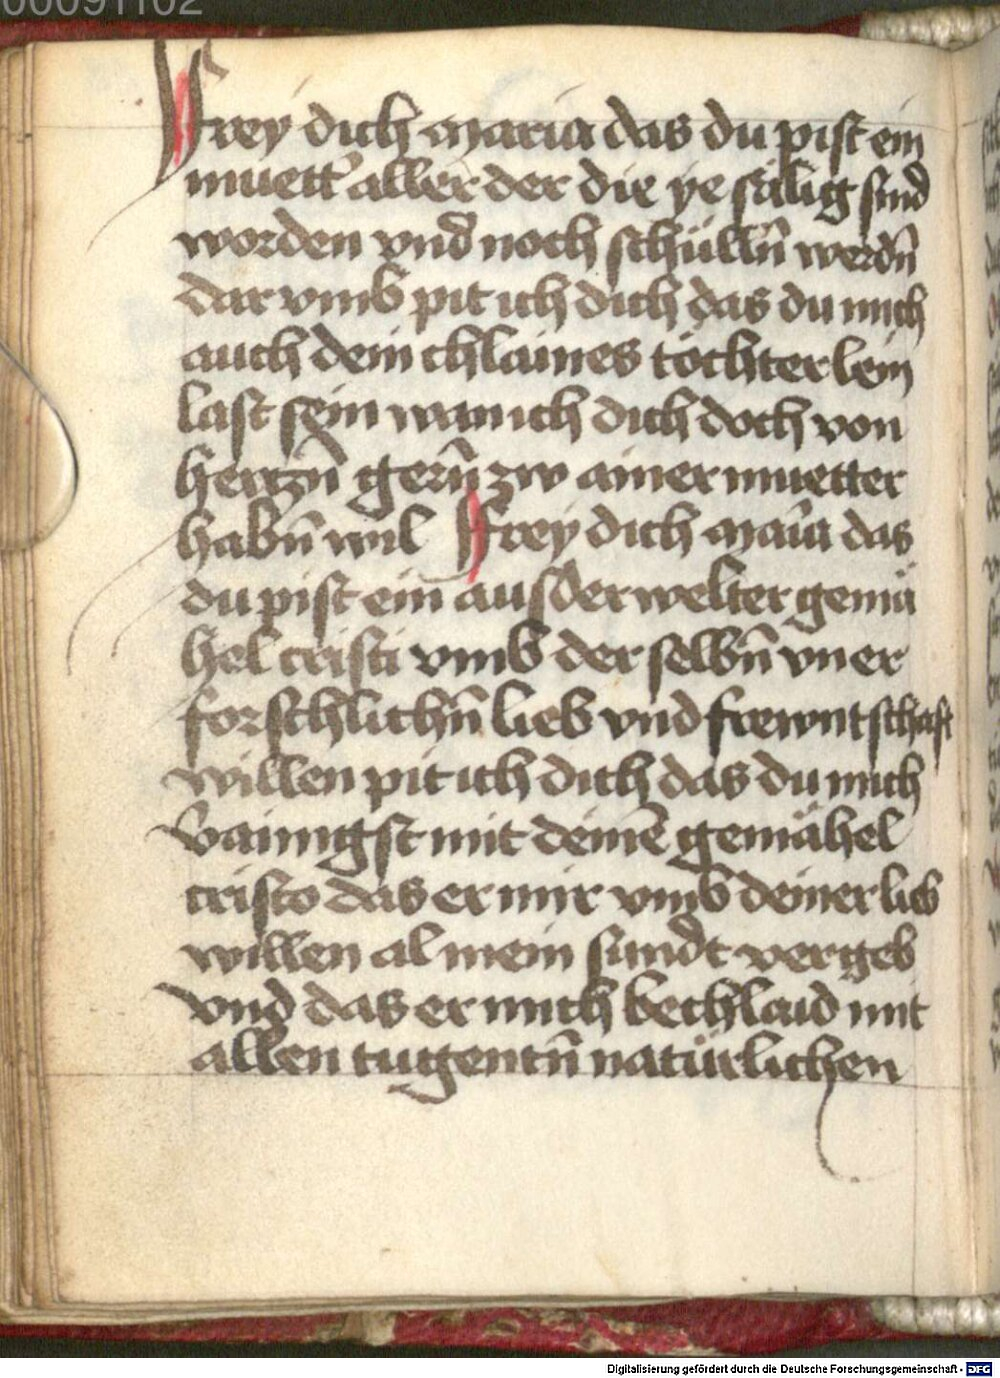 00091102
Frey dich maria das du pist ein
muett' aller der die ye sälig sind
worden vnd noch schülln̄ werdn̄
dar vmb pit ich dich das du mich
auch dein chlaines töchterlein
last sein wann ich dich doch von
hertzn̄ gern̄ zw ainer muetter
habn̄ wil Frey dich mar̄ia das
du pist ein ausderwelter gemä
hel cristi vmb der selbn̄ vner
forschlichn̄ lieb vnd frewntschaft
willen pit ich dich das du mich
v̄ainigst mit deinē gemähel
cristo das er mir vmb deiner lieb
willen al mein sundt vergeb
vnd das er mich bechlaid mit
allen tugentn̄ natürlichen
Digitalisierung gefördert durch die Deutsche Forschungsgemeinschaft - DFG